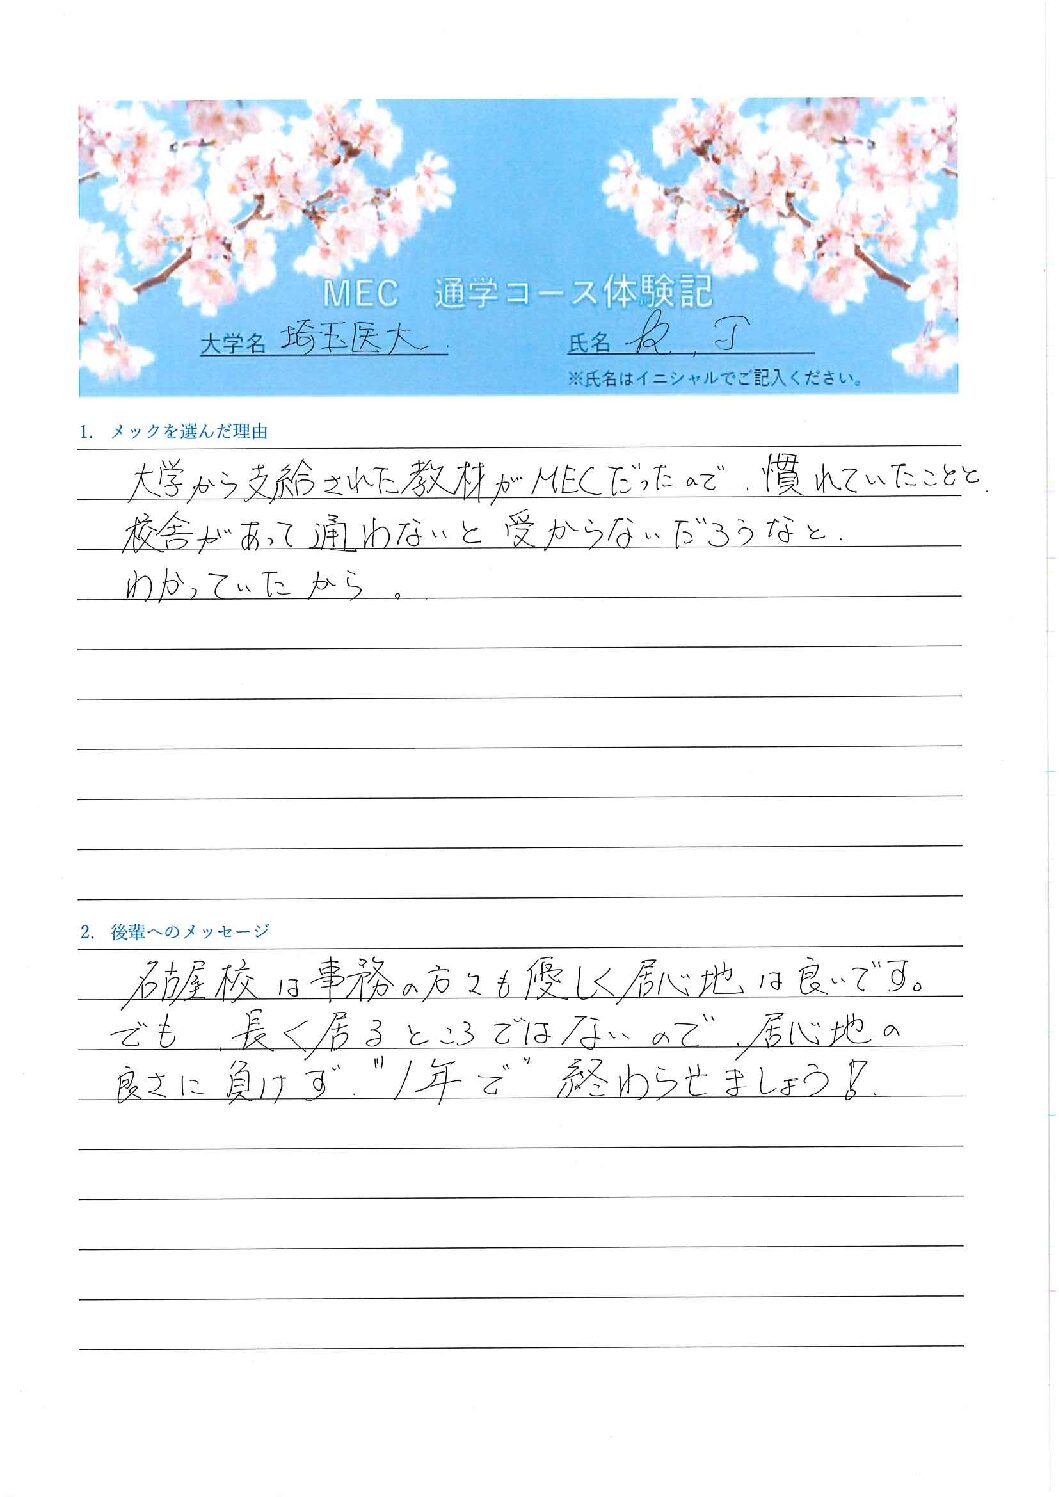 MEC 通学コース体験記
大学名 埼玉医大 氏名 R.J
※氏名はイニシャルでご記入ください。
1. メックを選んだ理由
大学から支給された教材がMECだったので、慣れていたことと、
校舎があって通わないと受からないだろうなと、
わかっていたから。
2. 後輩へのメッセージ
名古屋校は事務の方々も優しく居心地は良いです。
でも、長く居るところではないので、居心地の
良さに負けず、"1年で"終わらせましょう!